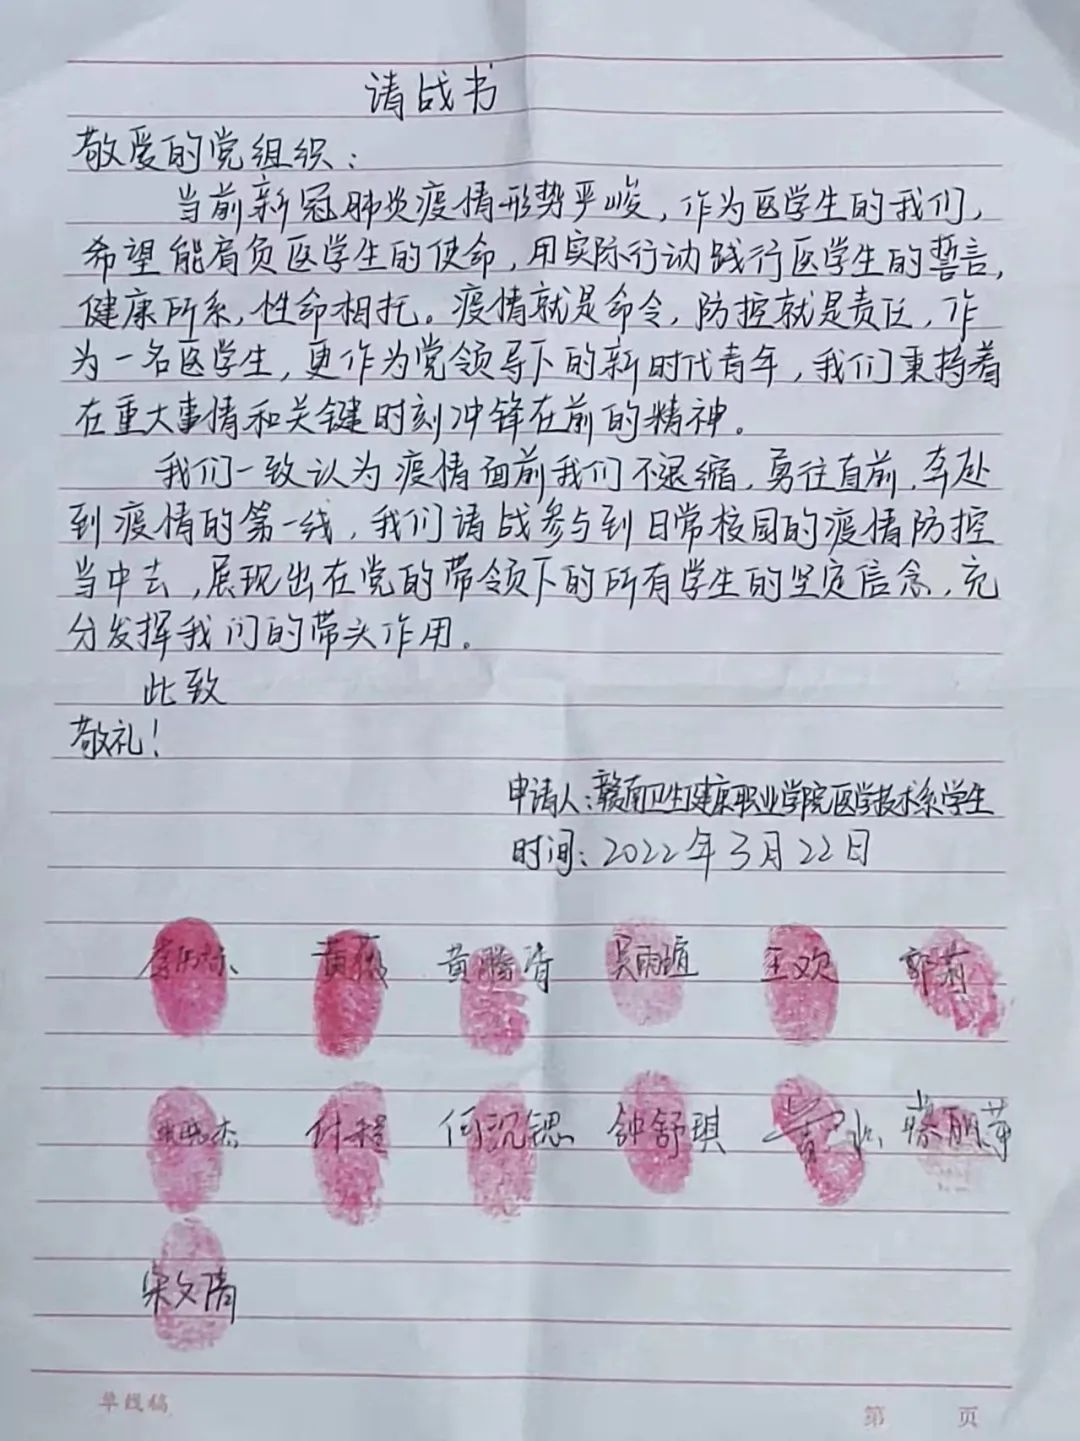 请战书
敬爱的党组织：
当前新冠肺炎疫情形势严峻，作为医学生的我们，
希望能肩负医学生的使命，用实际行动践行医学生的誓言，
健康所系，性命相托。疫情就是命令，防控就是责任，作
为一名医学生，更作为党领导下的新时代青年，我们秉持着
在重大事情和关键时刻冲锋在前的精神。
我们一致认为疫情面前我们不退缩，勇往直前，奔赴
到疫情的第一线，我们请战参与到日常校园的疫情防控
当中去，展现出在党的带领下的所有学生的坚定信念，充
分发挥我们的带头作用。
此致
敬礼！
申请人：赣南卫生健康职业学院医学技术系学生
时间：2022年3月22日
黄薇 黄腾 吴雨 王欢 郭莉
杰 付 何沉锶 钟舒琪 黄 丽萍
宋文清
单线稿
第 页